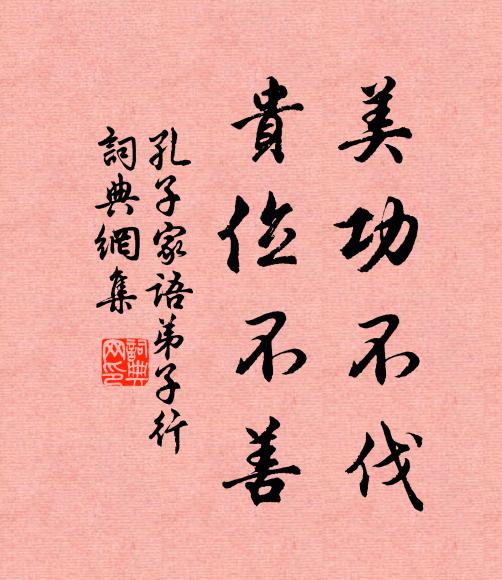 美功不伐
貴位不善
孔子家語弟子行
詞典網集
詞典网印